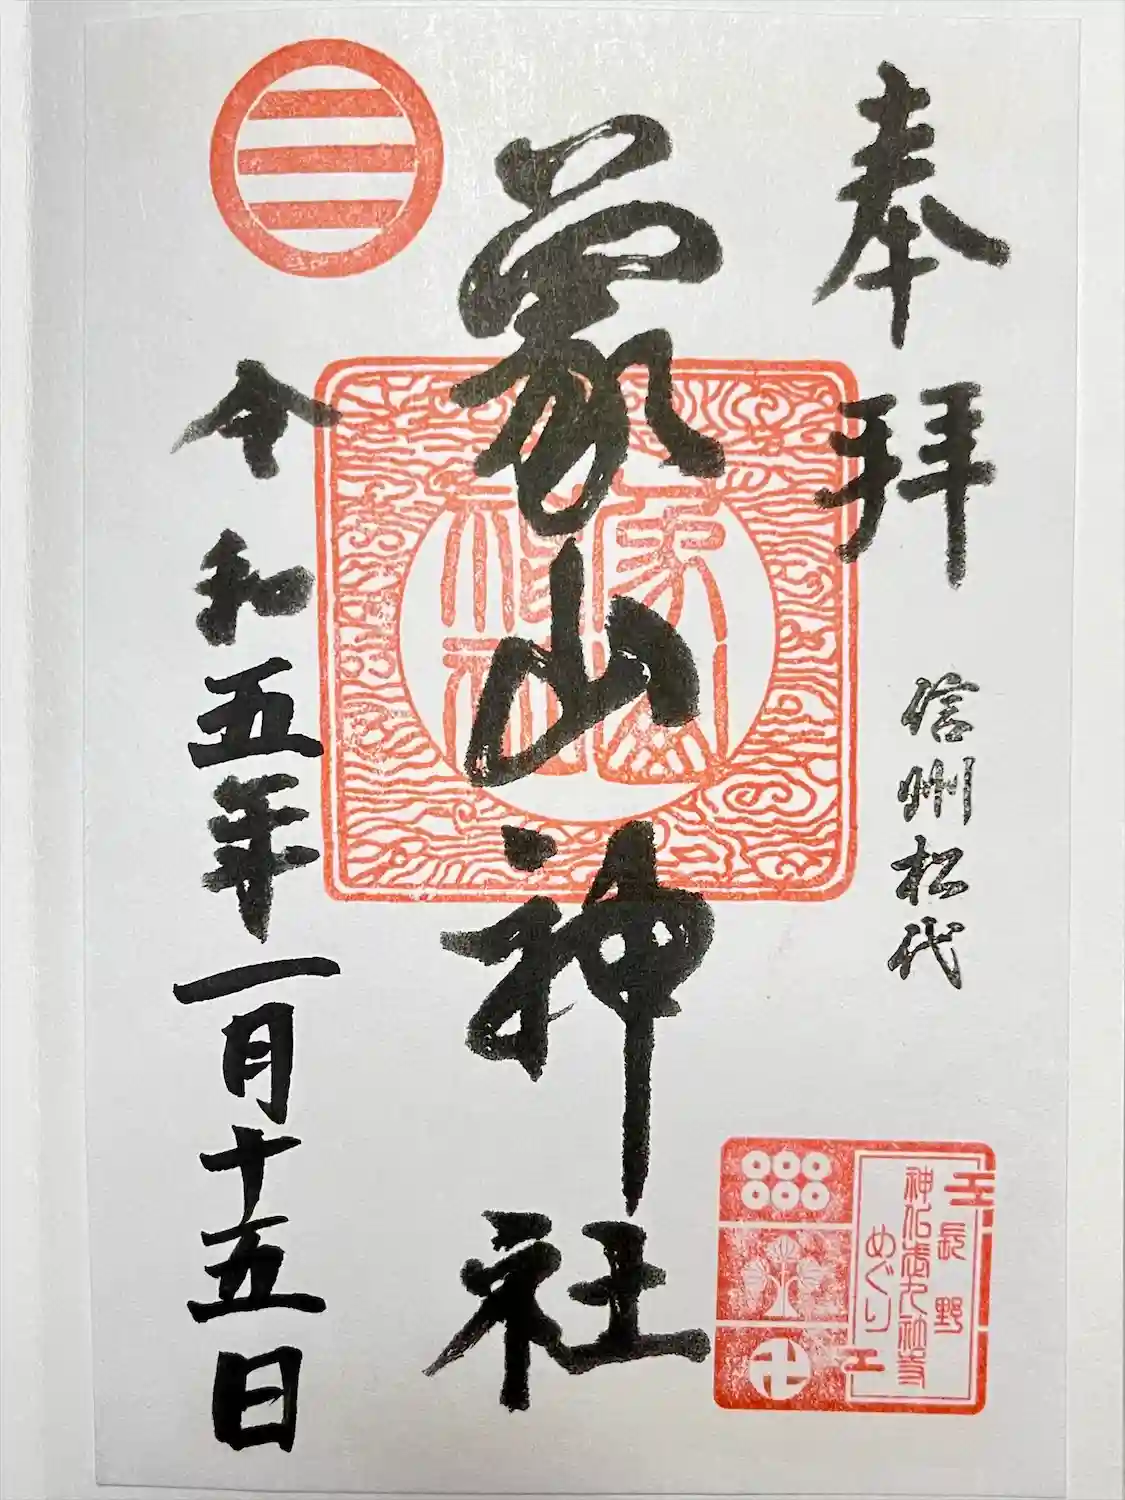 奉拝
信州松代
象山神社
令和五年一月十五日
象山
神社
長野
めぐり